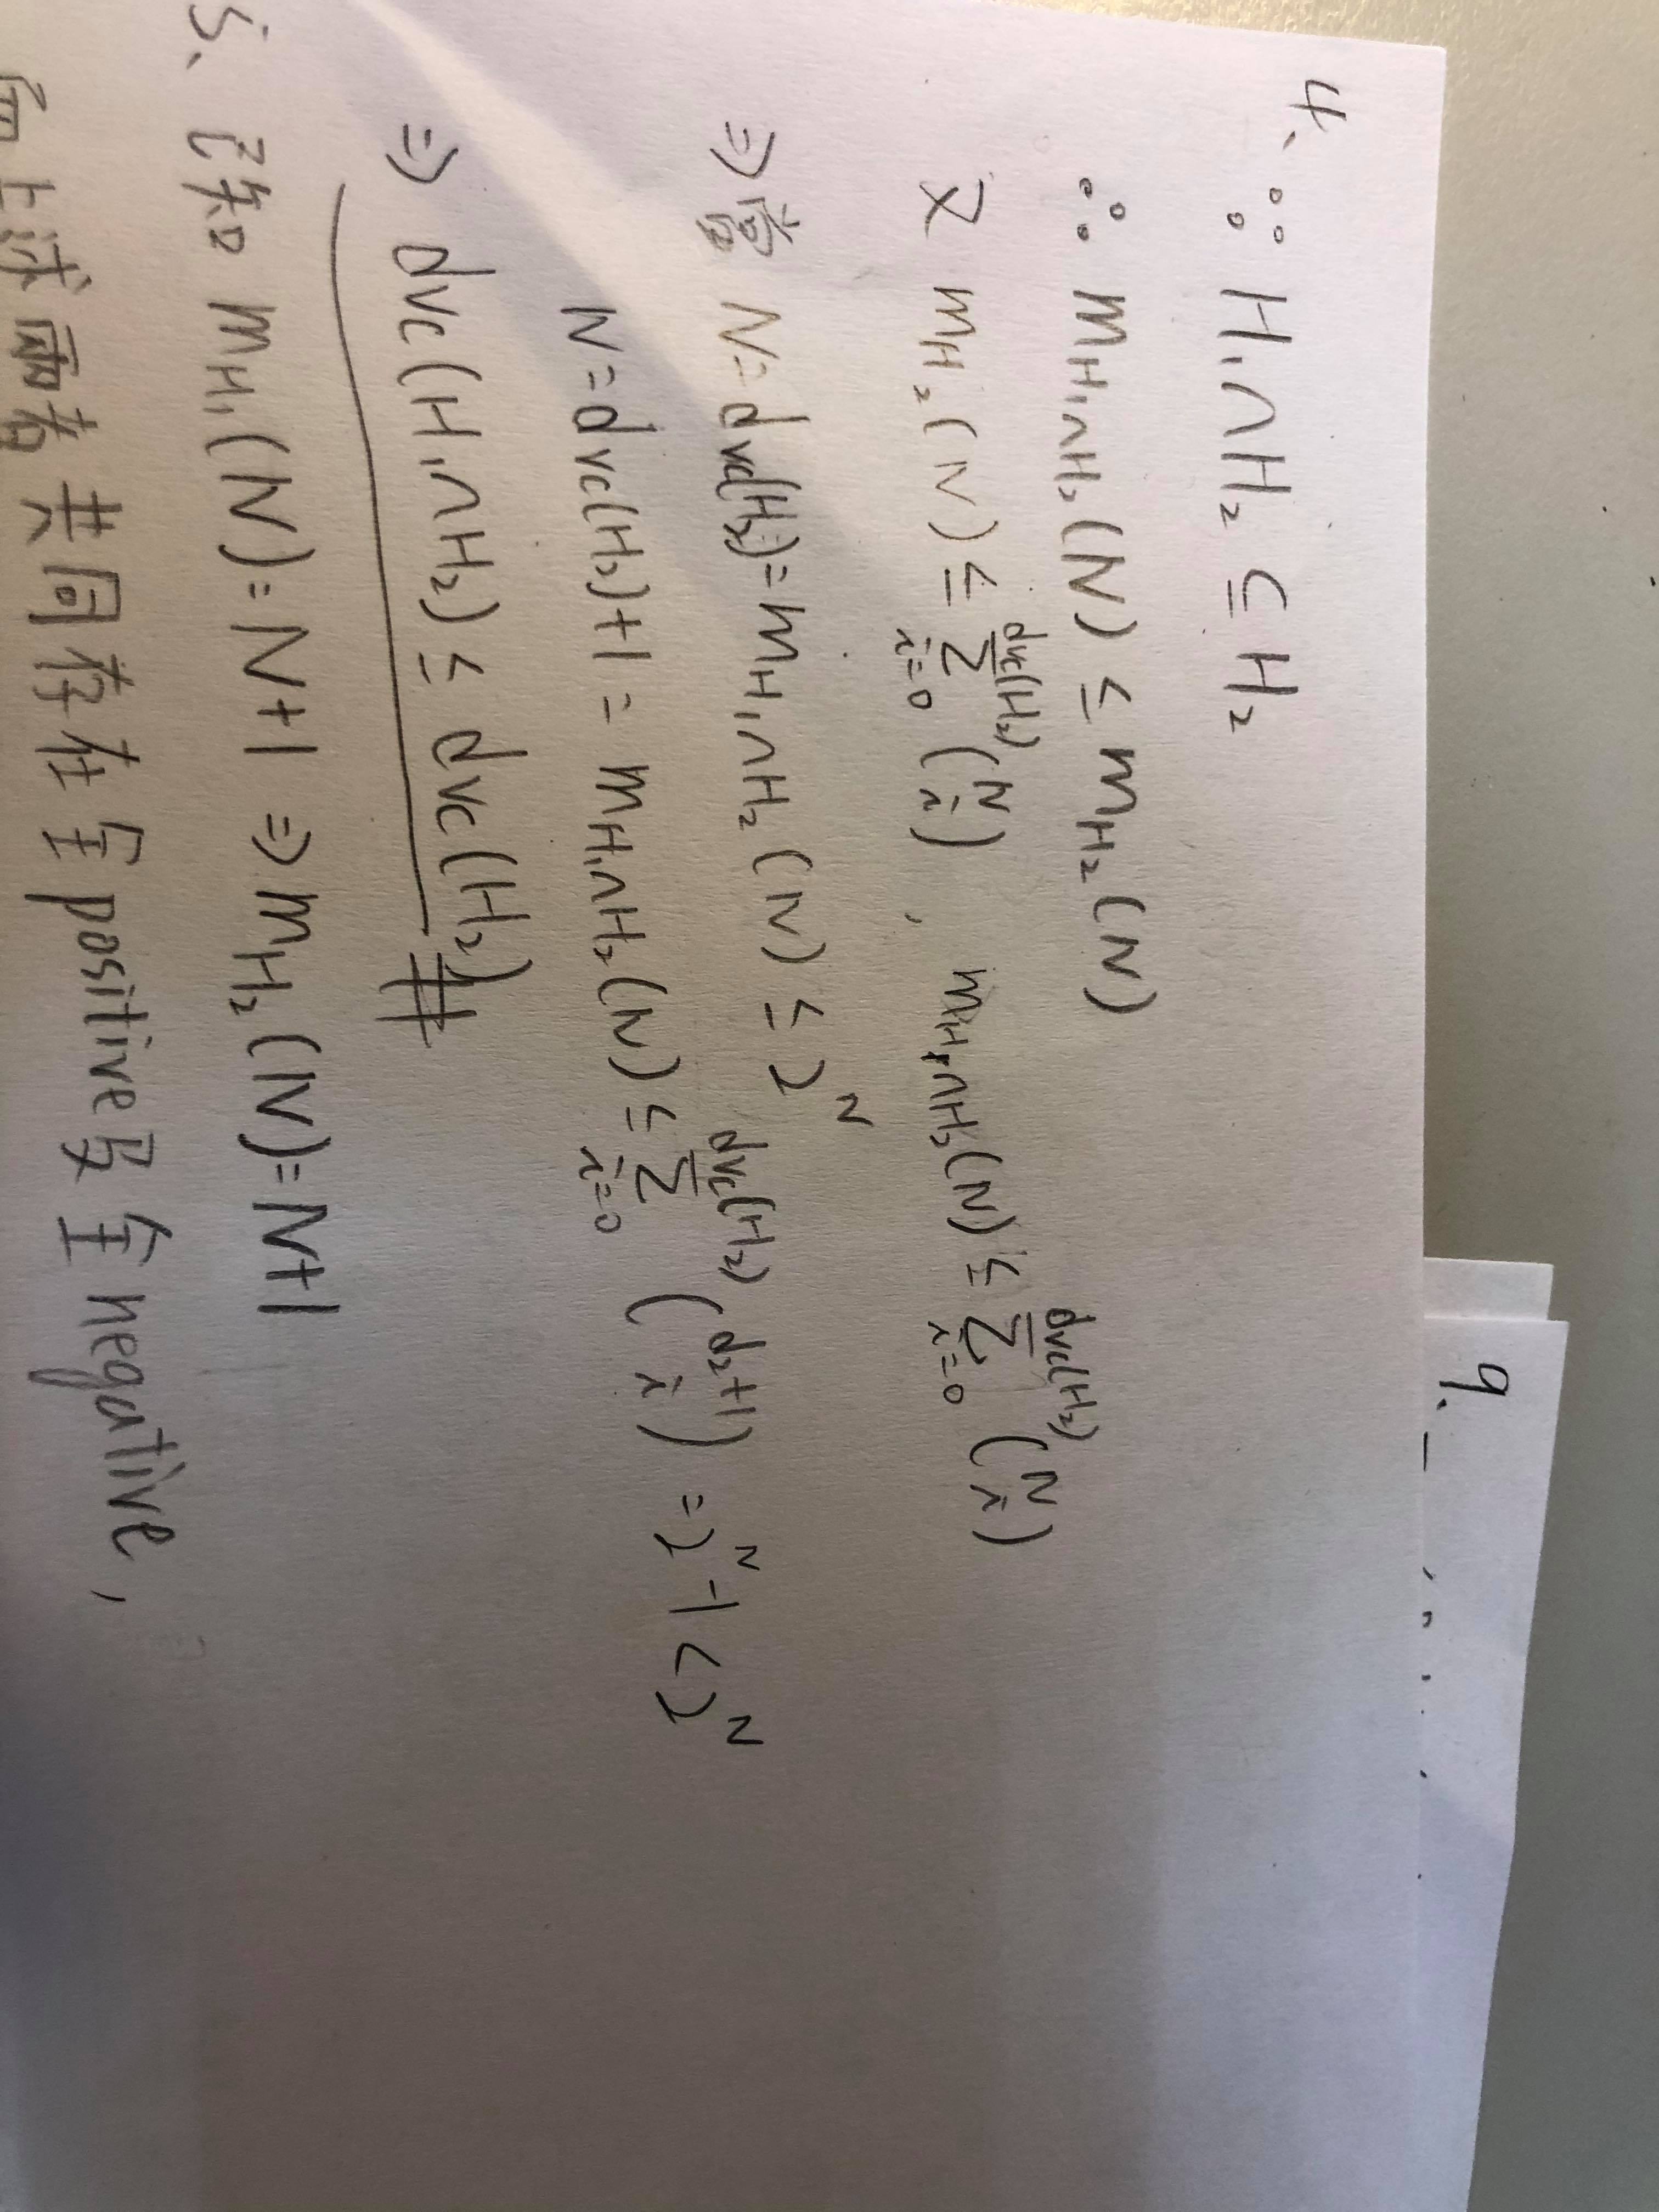 4、 ∵ H₁∩H₂ ⊆ H₂
∴ m_{H₁∩H₂}(N) ≤ m_{H₂}(N)
又 m_{H₂}(N) ≤ Σ_{i=0}^{dvc(H₂)} (N i) , m_{H₁∩H₂}(N) ≤ Σ_{i=0}^{dvc(H₂)} (N i)
⇒ 當 N=dvc(H₂)= m_{H₁∩H₂}(N) ≤ 2^N
N=dvc(H₂)+1 = m_{H₁∩H₂}(N) ≤ Σ_{i=0}^{dvc(H₂)} (d₂+1 i) = 2^N-1 < 2^N
⇒ dvc(H₁∩H₂) ≤ dvc(H₂) #
5、 已知 m_{H₁}(N)=N+1 ⇒ m_{H₂}(N)=N+1
而上述兩者共同存在全positive與全negative,
9、